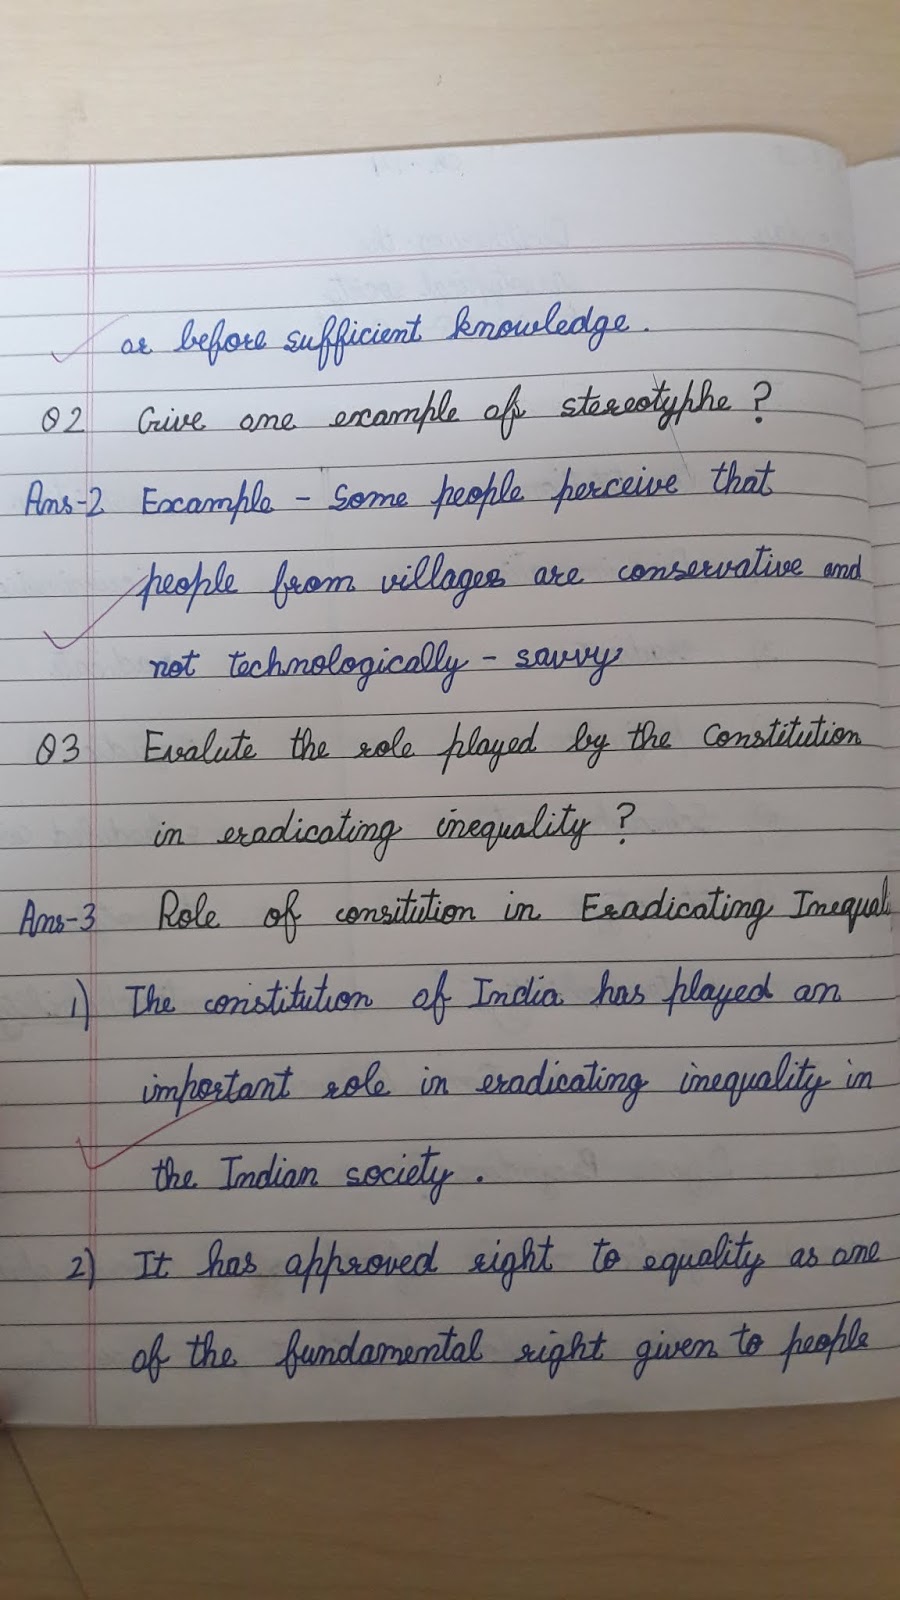 or before sufficient knowledge.
Q2 Give one example of stereotyphe ?
Ans-2 Example - Some people perceive that
people from villages are conservative and
not technologically - savvy
Q3 Evalute the role played by the Constitution
in eradicating inequality ?
Ans-3 Role of consitution in Eradicating Inequal
1) The constitution of India has played an
important role in eradicating inequality in
the Indian society.
2) It has approved right to equality as one
of the fundamental right given to people